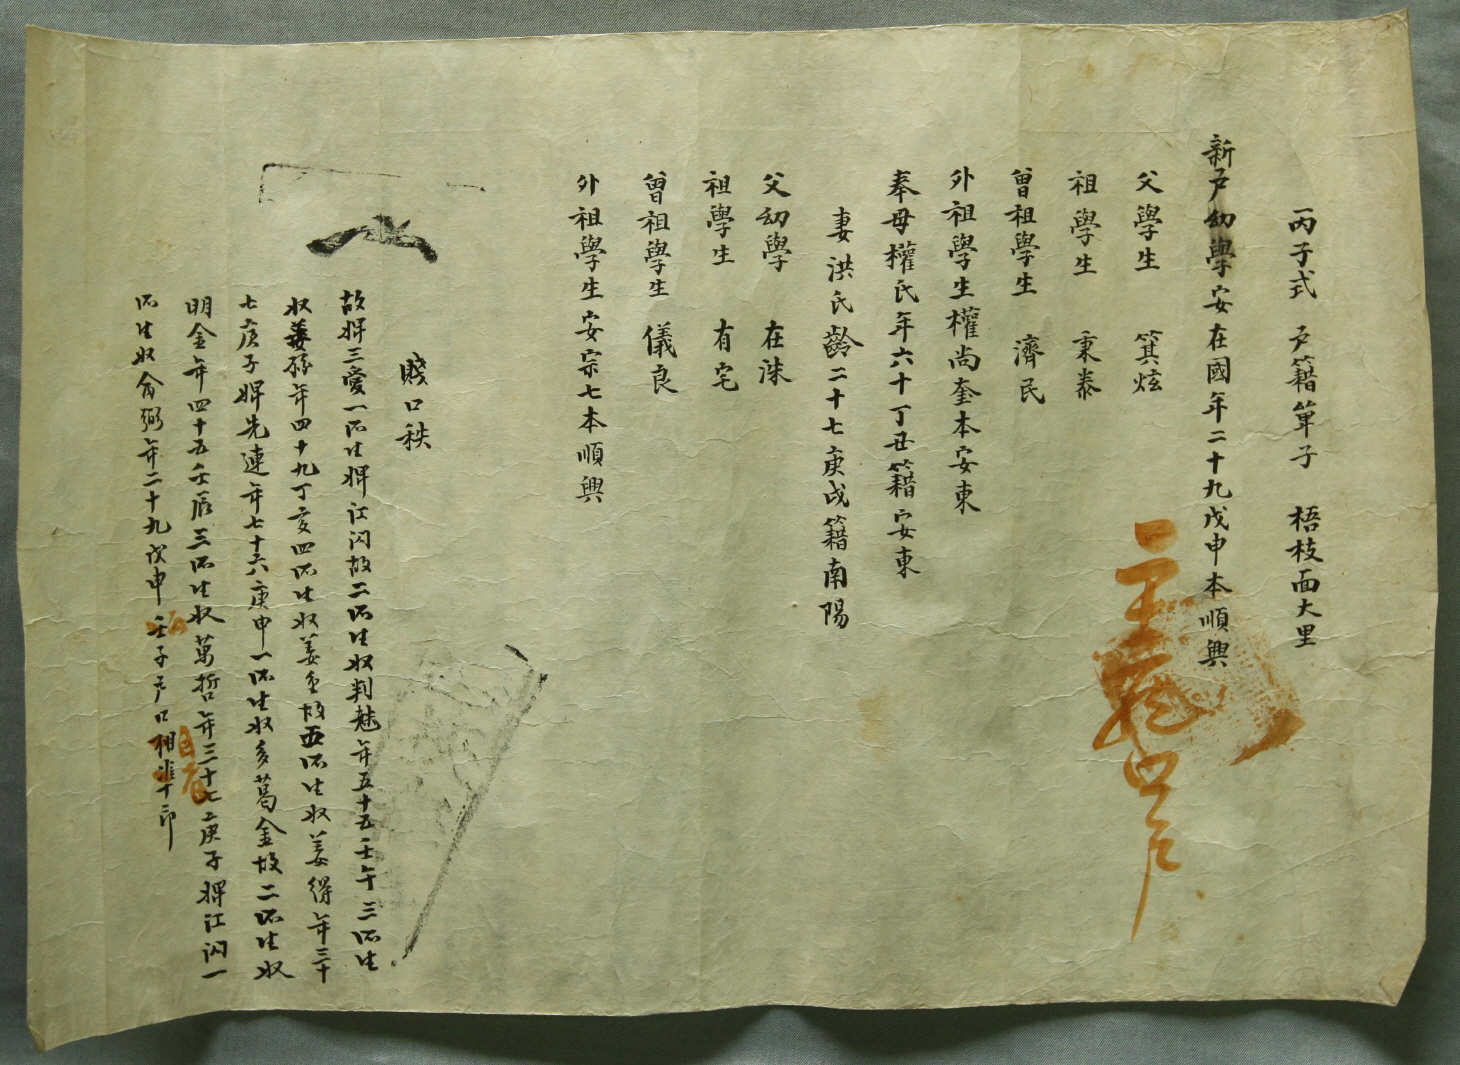 丙子式 戶籍單子 梧枝面大里
新戶幼學安在國年二十九戊申本順興
父學生 箕炫
祖學生 秉泰
曾祖學生 濟民
外祖學生權尚奎本安東
奉母權氏年六十丁丑籍安東
妻洪氏齡二十七庚戌籍南陽
父幼學 在洙
祖學生 有宅
曾祖學生 儀良
外祖學生安宗七本順興
賤口秩
故婢三愛一所生婢江閃故二所生奴判 年五十五壬午三所生
奴姜 年四十九丁亥四所生奴姜 故五所生奴姜得年三十
七庚子婢先連年七十六庚申一所生奴多葛金故二所生奴
明金年四十五壬辰三所生奴萬哲年三十七庚子婢江閃一
所生奴 弼年二十九戊申 壬子戶口相準印